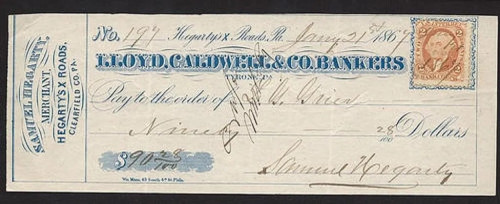 SAMUEL HEGARTY,
MERCHANT,
HEGARTY'S X ROADS,
CLEARFIELD CO. PA.
No. 197 Hegarty's X Roads, Pa. Jany 21st 1867
LLOYD, CALDWELL & CO. BANKERS
TYRONE, PA
Pay to the order of Grier
Ninety 28/100 Dollars
$90 28/100
Samuel Hegarty